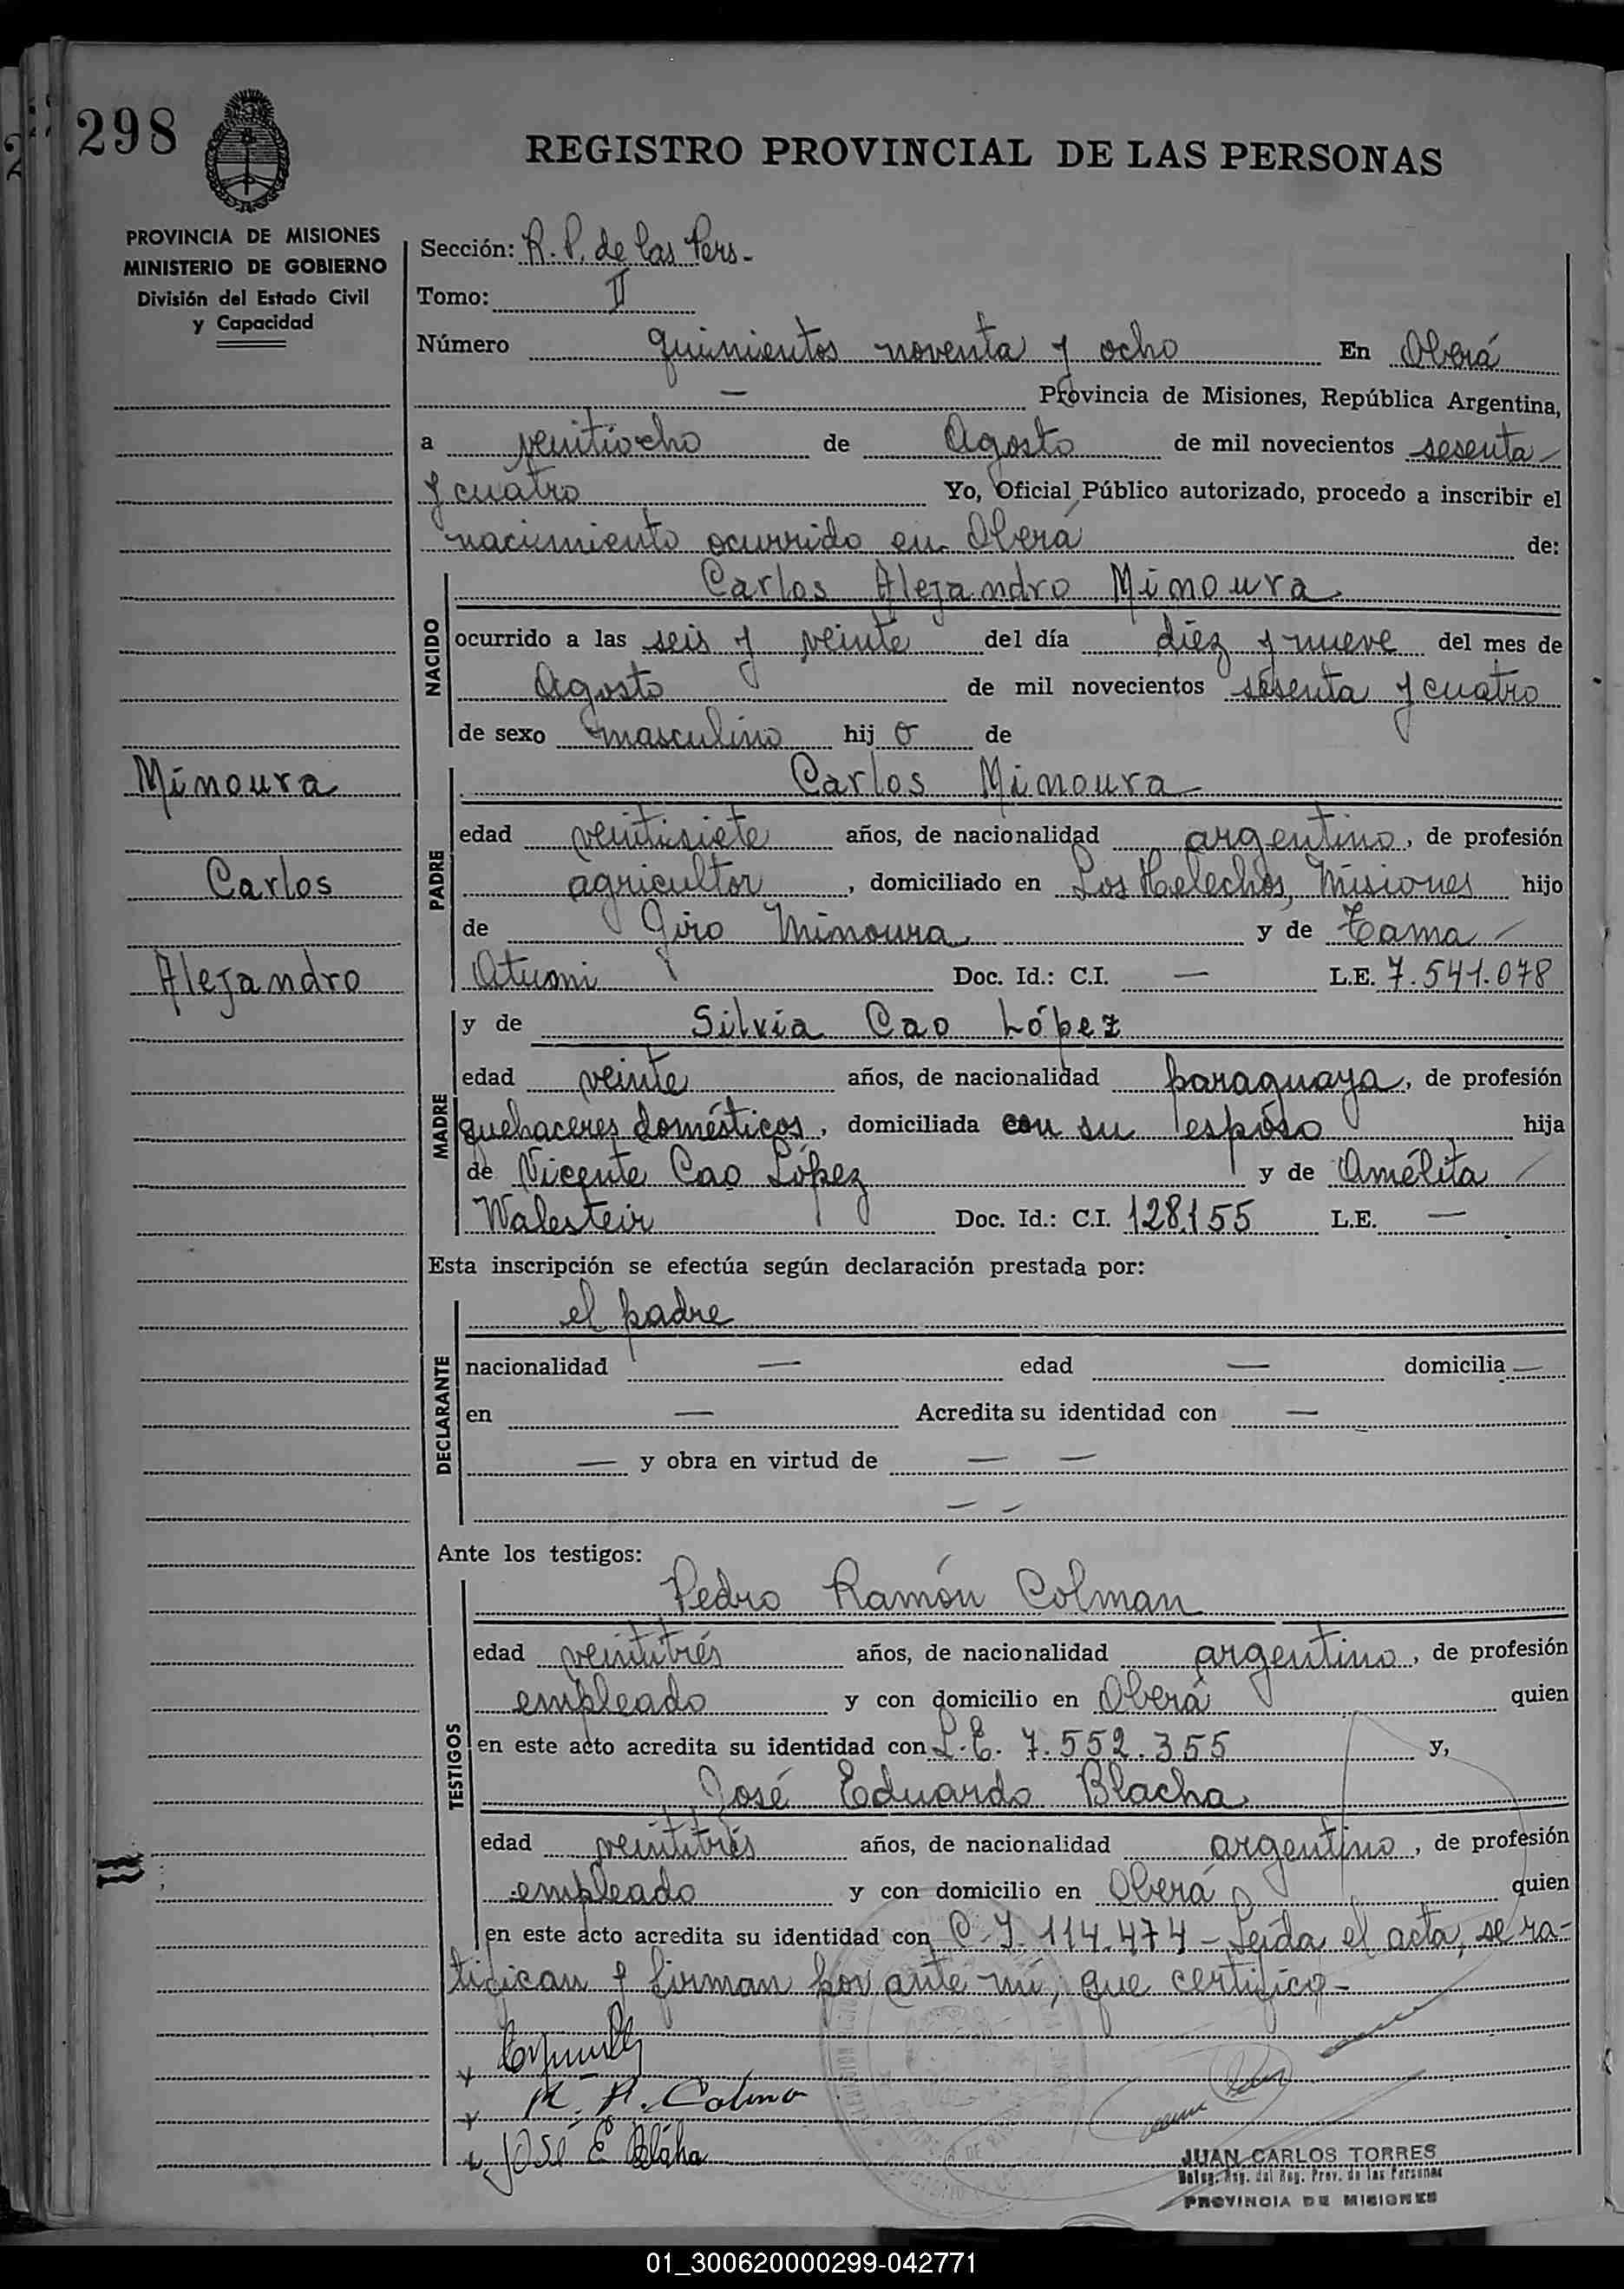 298
REGISTRO PROVINCIAL DE LAS PERSONAS
PROVINCIA DE MISIONES
MINISTERIO DE GOBIERNO
División del Estado Civil
y Capacidad
Sección: R. P. de las Pers-
Tomo: II
Número quinientos noventa y ocho En Oberá
— Provincia de Misiones, República Argentina,
a veintiocho de Agosto de mil novecientos sesenta
y cuatro Yo, Oficial Público autorizado, procedo a inscribir el
nacimiento ocurrido en Oberá de:
NACIDO
Carlos Alejandro Minoura
ocurrido a las seis y veinte del día diez y nueve del mes de
Agosto de mil novecientos sesenta y cuatro
de sexo masculino hij o de
Minoura
Carlos
Alejandro
PADRE
Carlos Minoura
edad veintisiete años, de nacionalidad argentino, de profesión
agricultor, domiciliado en Los Helechos, Misiones hijo
de Giro Minoura y de Tama
Atumi Doc. Id.: C.I. — L.E. 7.541.078
MADRE
y de Silvia Cao López
edad veinte años, de nacionalidad paraguaya, de profesión
quehaceres domésticos, domiciliada con su esposo hija
de Vicente Cao López y de Amélita
Walesteir Doc. Id.: C.I. 128.155 L.E. —
Esta inscripción se efectúa según declaración prestada por:
DECLARANTE
el padre
nacionalidad — edad — domicilia —
en — Acredita su identidad con —
— y obra en virtud de — —
— —
Ante los testigos:
TESTIGOS
Pedro Ramón Colman
edad veintitrés años, de nacionalidad argentino, de profesión
empleado y con domicilio en Oberá quien
en este acto acredita su identidad con L.E. 7.552.355 y,
José Eduardo Blacha
edad veintitrés años, de nacionalidad argentino, de profesión
empleado y con domicilio en Oberá quien
en este acto acredita su identidad con C.I. 114.474 - Leída el acta, se ra-
tifican y firman por ante mí, que certifico -
JOSÉ E Bláha
JUAN CARLOS TORRES
Reg. Prov. de las Personas
PROVINCIA DE MISIONES
01_300620000299-042771